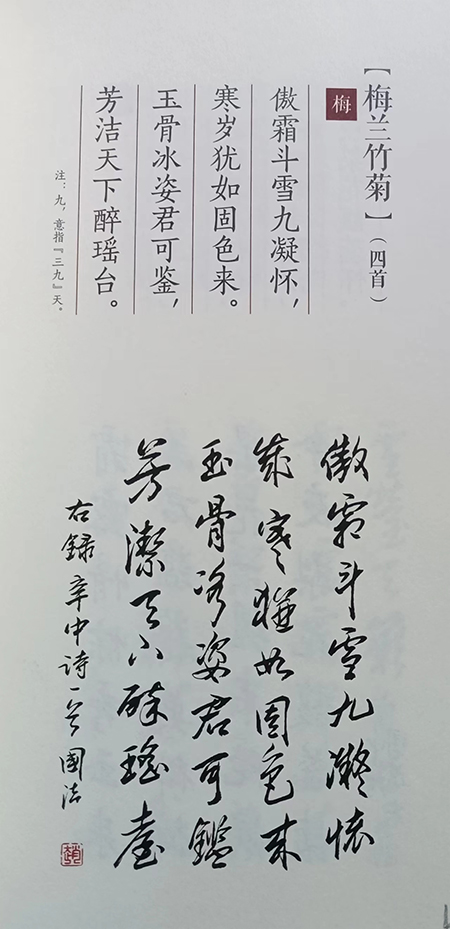 【梅兰竹菊】（四首）
梅
傲霜斗雪九凝怀，
寒岁犹如固色来。
玉骨冰姿君可鉴，
芳洁天下醉瑶台。
注：九，意指『三九』天。
傲霜斗雪九凝懷
歲寒猶如固色來
玉骨冰姿君可鑑
芳潔天下醉瑤臺
右録辛中詩一首國法
趙